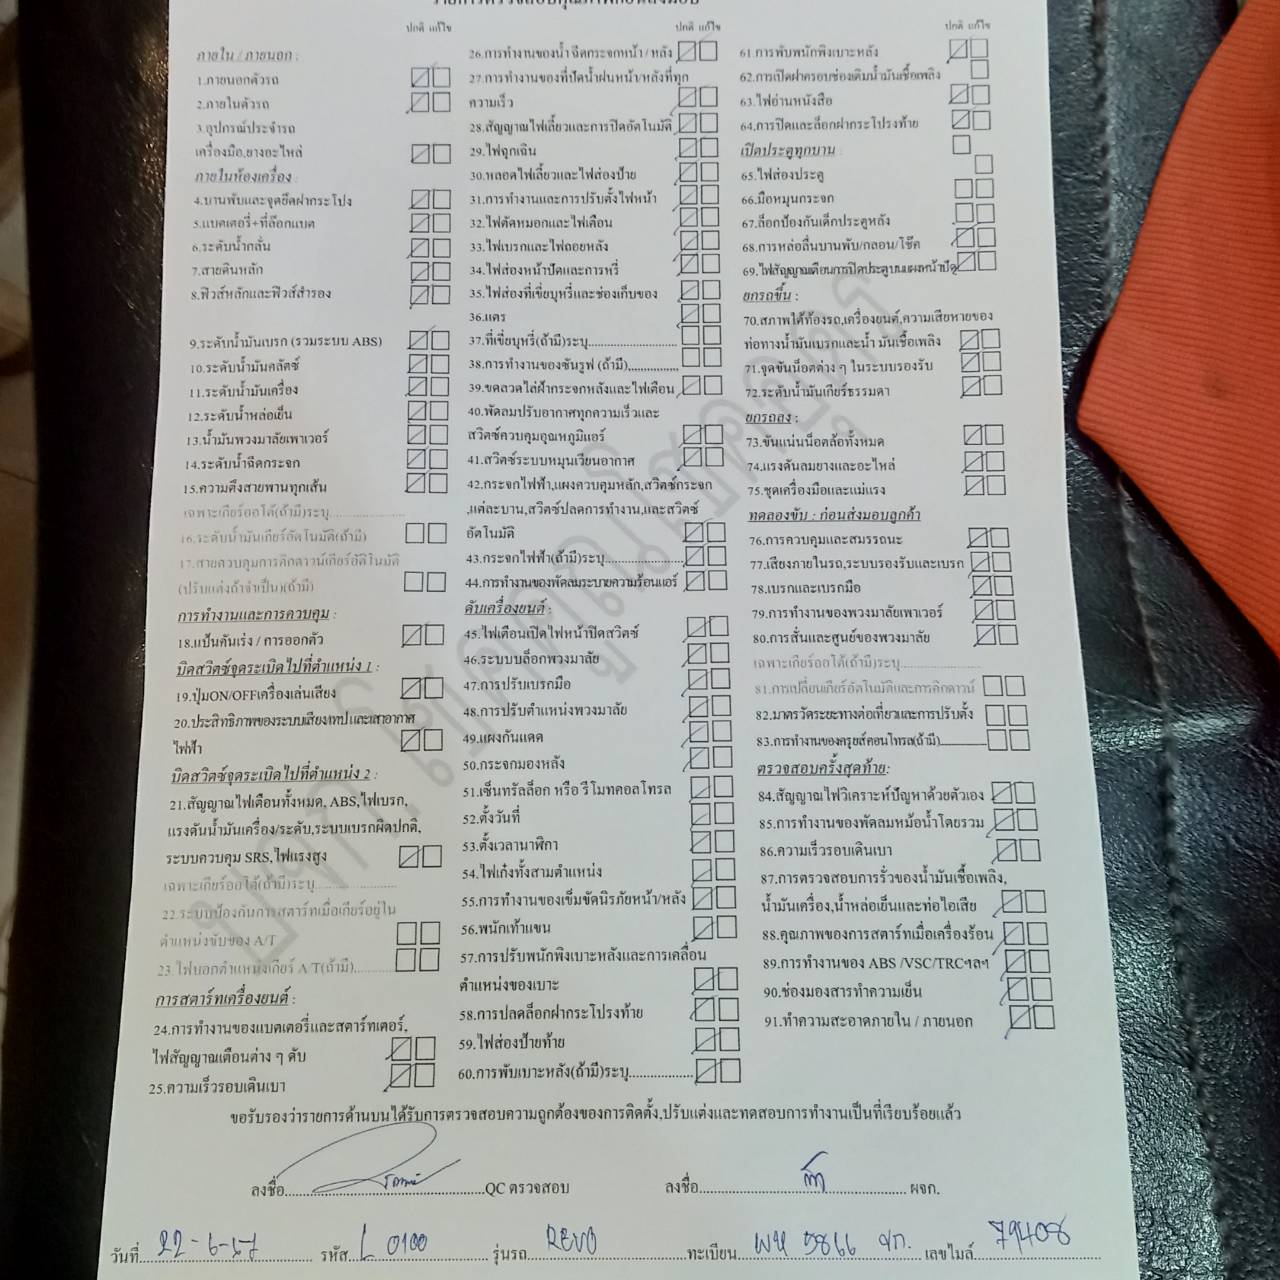 รายการตรวจสอบคุณภาพก่อนส่งมอบ
ปกติ แก้ไข
ภายใน / ภายนอก :
1.ภายนอกตัวรถ
2.ภายในตัวรถ
3.อุปกรณ์ประจำรถ
เครื่องมือ,ยางอะไหล่
ภายในห้องเครื่อง :
4.บานพับและจุดยึดฝากระโปง
5.แบตเตอรี่+ที่ล๊อกแบต
6.ระดับน้ำกลั่น
7.สายดินหลัก
8.ฟิวส์หลักและฟิวส์สำรอง
9.ระดับน้ำมันเบรก (รวมระบบ ABS)
10.ระดับน้ำมันคลัตช์
11.ระดับน้ำมันเครื่อง
12.ระดับน้ำหล่อเย็น
13.น้ำมันพวงมาลัยเพาเวอร์
14.ระดับน้ำฉีดกระจก
15.ความตึงสายพานทุกเส้น
เฉพาะเกียร์ออโต้(ถ้ามี)ระบุ
16.ระดับน้ำมันเกียร์อัตโนมัติ(ถ้ามี)
17.สายควบคุมการคิกดาวน์เกียร์อัติโนมัติ
(ปรับแต่งถ้าจำเป็น)(ถ้ามี)
การทำงานและการควบคุม :
18.แป้นคันเร่ง / การออกตัว
บิดสวิตซ์จุดระเบิดไปที่ตำแหน่ง 1 :
19.ปุ่มON/OFFเครื่องเล่นเสียง
20.ประสิทธิภาพของระบบเสียง/เทป และเสาอากาศ
ไฟฟ้า
บิดสวิตซ์จุดระเบิดไปที่ตำแหน่ง 2 :
21.สัญญาณไฟเตือนทั้งหมด, ABS,ไฟเบรก,
แรงดันน้ำมันเครื่อง/ระดับ,ระบบเบรกผิดปกติ,
ระบบควบคุม SRS,ไฟแรงสูง
เฉพาะเกียร์ออโต้(ถ้ามี)ระบุ
22.ระบบป้องกันการสตาร์ทเมื่อเกียร์อยู่ใน
ตำแหน่งขับของ A/T
23.ไฟบอกตำแหน่งเกียร์ A/T(ถ้ามี)
การสตาร์ทเครื่องยนต์ :
24.การทำงานของแบตเตอรี่และสตาร์ทเตอร์,
ไฟสัญญาณเตือนต่าง ๆ ดับ
25.ความเร็วรอบเดินเบา
ปกติ แก้ไข
26.การทำงานของน้ำ ฉีดกระจกหน้า / หลัง
27.การทำงานของที่ปัดน้ำฝนหน้า/หลังที่ทุก
ความเร็ว
28.สัญญาณไฟเลี้ยวและการปิดอัตโนมัติ
29.ไฟฉุกเฉิน
30.หลอดไฟเลี้ยวและไฟส่องป้าย
31.การทำงานและการปรับตั้งไฟหน้า
32.ไฟตัดหมอกและไฟเตือน
33.ไฟเบรกและไฟถอยหลัง
34.ไฟส่องหน้าปัดและการหรี่
35.ไฟส่องที่เขี่ยบุหรี่และช่องเก็บของ
36.แตร
37.ที่เขี่ยบุหรี่(ถ้ามี)ระบุ
38.การทำงานของซันรูฟ (ถ้ามี)
39.ขดลวดไล่ฝ้ากระจกหลังและไฟเตือน
40.พัดลมปรับอากาศทุกความเร็วและ
สวิตซ์ควบคุมอุณหภูมิแอร์
41.สวิตซ์ระบบหมุนเวียนอากาศ
42.กระจกไฟฟ้า,แผงควบคุมหลัก,สวิตซ์กระจก
,แต่ละบาน,สวิตซ์ปลดการทำงาน,และสวิตซ์
อัตโนมัติ
43.กระจกไฟฟ้า(ถ้ามี)ระบุ
44.การทำงานของพัดลมระบายความร้อนแอร์
ดับเครื่องยนต์ :
45.ไฟเตือนเปิดไฟหน้าปิดสวิตซ์
46.ระบบบล็อกพวงมาลัย
47.การปรับเบรกมือ
48.การปรับตำแหน่งพวงมาลัย
49.แผงกันแดด
50.กระจกมองหลัง
51.เซ็นทรัลล็อก หรือ รีโมทคอลโทรล
52.ตั้งวันที่
53.ตั้งเวลานาฬิกา
54.ไฟเก๋งทั้งสามตำแหน่ง
55.การทำงานของเข็มขัดนิรภัยหน้า/หลัง
56.พนักเท้าแขน
57.การปรับพนักพิงเบาะหลังและการเคลื่อน
ตำแหน่งของเบาะ
58.การปลดล็อกฝากระโปรงท้าย
59.ไฟส่องป้ายท้าย
60.การพับเบาะหลัง(ถ้ามี)ระบุ
ปกติ แก้ไข
61.การพับพนักพิงเบาะหลัง
62.การเปิดฝาครอบช่องเติมน้ำมันเชื้อเพลิง
63.ไฟอ่านหนังสือ
64.การปิดและล็อกฝากระโปรงท้าย
เปิดประตูทุกบาน :
65.ไฟส่องประตู
66.มือหมุนกระจก
67.ล็อกป้องกันเด็กประตูหลัง
68.การหล่อลื่นบานพับ/กลอน/โช๊ค
69.ไฟสัญญาณเตือนการปิดประตูบนแผลหน้าปัด
ยกรถขึ้น :
70.สภาพใต้ท้องรถ,เครื่องยนต์,ความเสียหายของ
ท่อทางน้ำมันเบรกและน้ำ มันเชื้อเพลิง
71.จุดขันน็อตต่าง ๆ ในระบบรองรับ
72.ระดับน้ำมันเกียร์ธรรมดา
ยกรถลง :
73.ขันแน่นน็อตล้อทั้งหมด
74.แรงดันลมยางและอะไหล่
75.ชุดเครื่องมือและแม่แรง
ทดลองขับ : ก่อนส่งมอบลูกค้า
76.การควบคุมและสมรรถนะ
77.เสียงภายในรถ,ระบบรองรับและเบรก
78.เบรกและเบรกมือ
79.การทำงานของพวงมาลัยเพาเวอร์
80.การสั่นและศูนย์ของพวงมาลัย
เฉพาะเกียร์ออโต้(ถ้ามี)ระบุ
81.การเปลี่ยนเกียร์อัตโนมัติและการคิกดาวน์
82.มาตรวัดระยะทางต่อเที่ยวและการปรับตั้ง
83.การทำงานของครุยส์คอนโทรล(ถ้ามี)
ตรวจสอบครั้งสุดท้าย:
84.สัญญาณไฟวิเคราะห์ปัญหาด้วยตัวเอง
85.การทำงานของพัดลมหม้อน้ำโดยรวม
86.ความเร็วรอบเดินเบา
87.การตรวจสอบการรั่วของน้ำมันเชื้อเพลิง,
น้ำมันเครื่อง,น้ำหล่อเย็นและท่อไอเสีย
88.คุณภาพของการสตาร์ทเมื่อเครื่องร้อน
89.การทำงานของ ABS /VSC/TRCฯลฯ
90.ช่องมองสารทำความเย็น
91.ทำความสะอาดภายใน / ภายนอก
ขอรับรองว่ารายการด้านบนได้รับการตรวจสอบความถูกต้องของการติดตั้ง,ปรับแต่งและทดสอบการทำงานเป็นที่เรียบร้อยแล้ว
ลงชื่อ QC ตรวจสอบ ลงชื่อ ผจก.
วันที่ 22-6-67 รหัส L 0100 รุ่นรถ REVO ทะเบียน ผห 5866 ขก. เลขไมล์ 79408